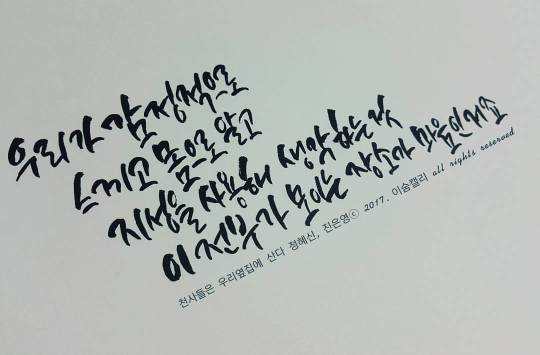 우리가 감정적으로
느끼고 몸으로 알고
지성을 사용해 생각하는 것
이 전부가 모이는 장소가 마음인거죠
천사들은 우리옆집에 산다 정혜신, 진은영ⓒ 2017. 이숨캘리 all rights reserved